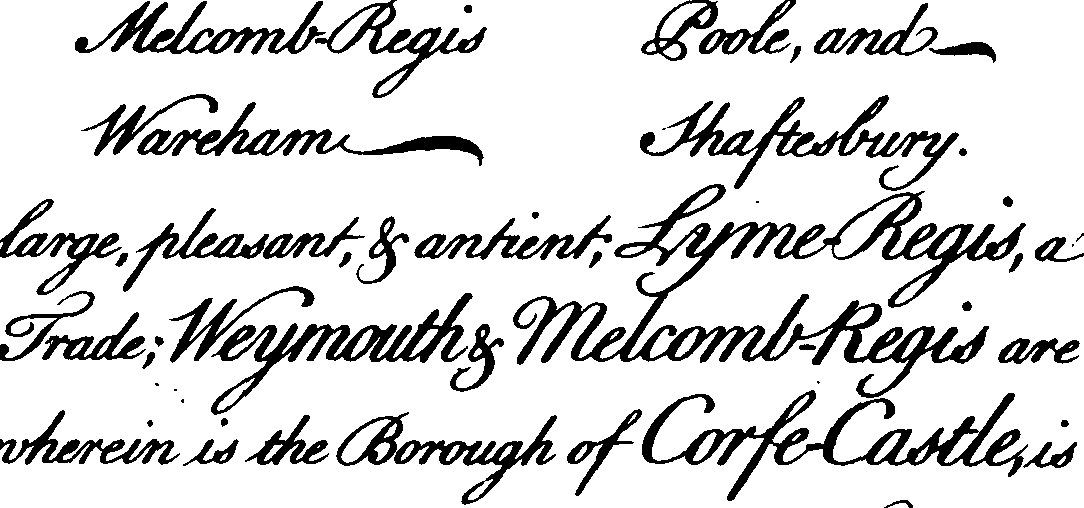 Melcomb-Regis Poole, and
Wareham Shaftesbury.
large, pleasant, & antient; Lyme-Regis, a
Trade; Weymouth & Melcomb-Regis are
wherein is the Borough of Corfe-Castle, is